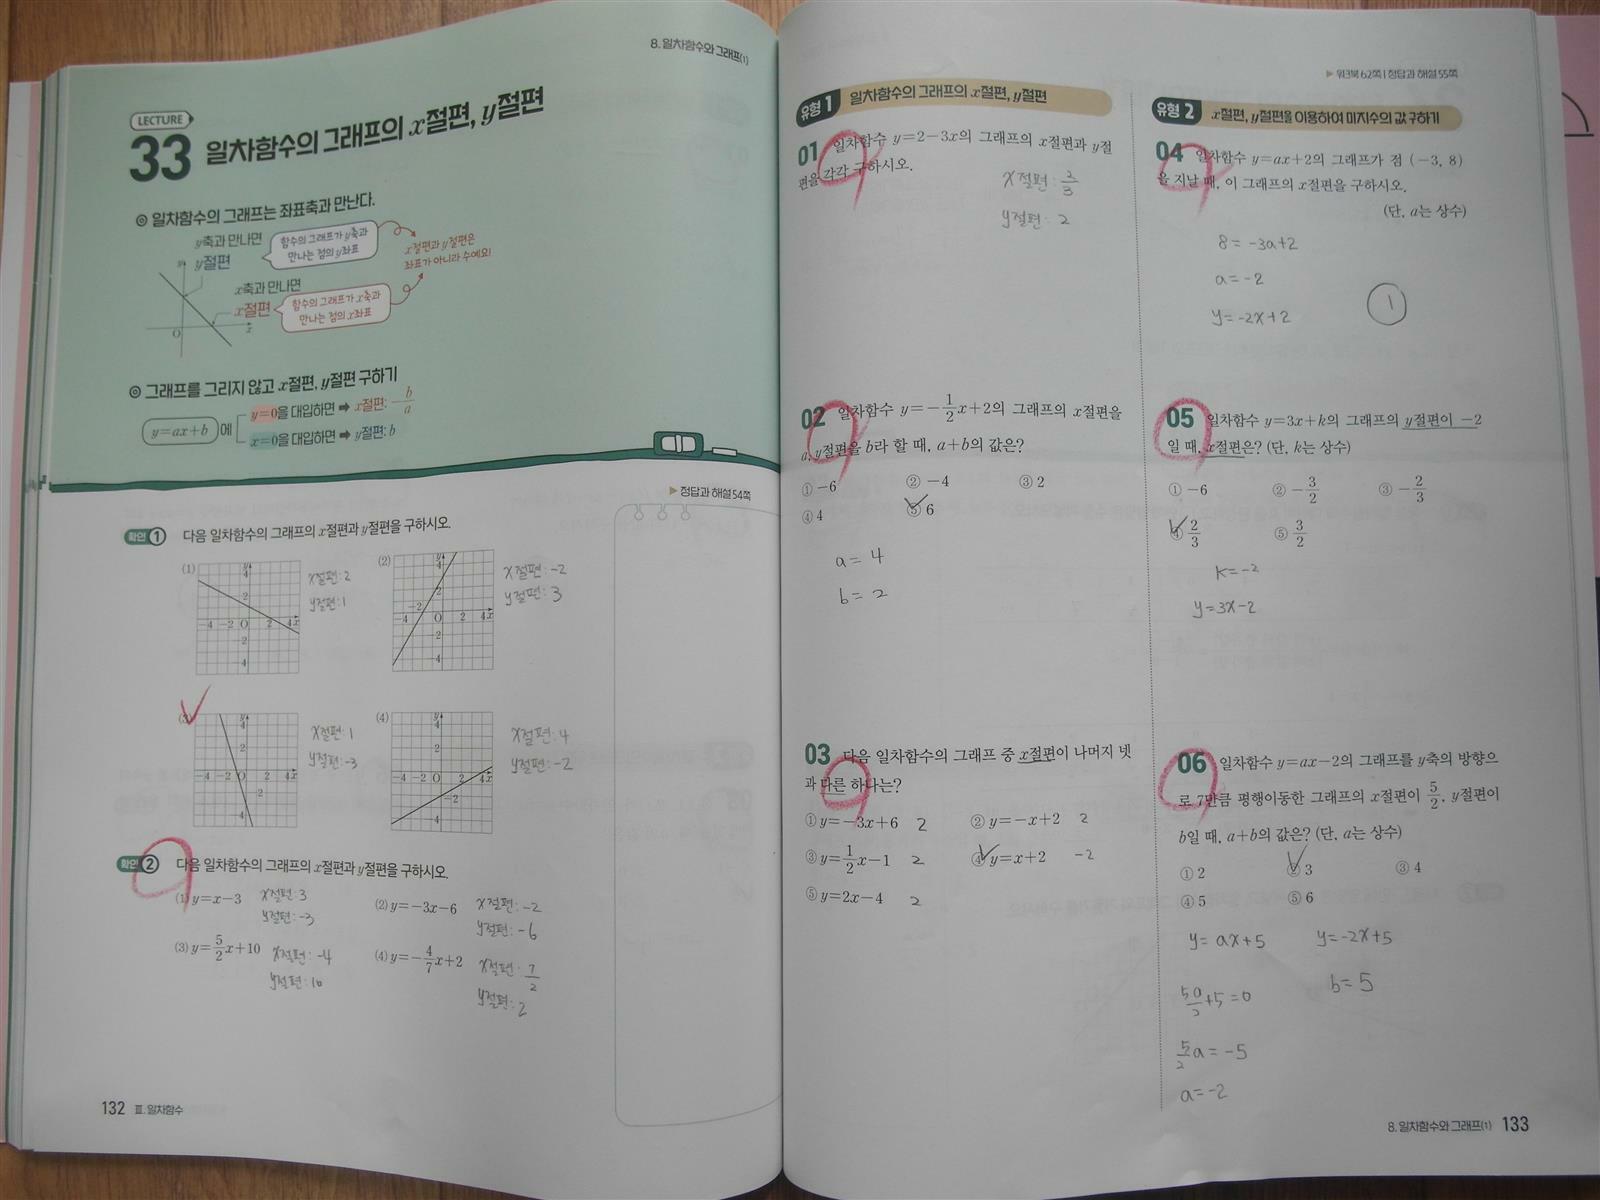 8. 일차함수와 그래프(1)
LECTURE
33 일차함수의 그래프의 x절편, y절편
◎ 일차함수의 그래프는 좌표축과 만난다.
y축과 만나면
y절편
함수의 그래프가 y축과
만나는 점의 y좌표
x절편과 y절편은
좌표가 아니라 수예요!
x축과 만나면
x절편
함수의 그래프가 x축과
만나는 점의 x좌표
y
O
x
◎ 그래프를 그리지 않고 x절편, y절편 구하기
y=ax+b 에
y=0을 대입하면 ➡ x절편: -b/a
x=0을 대입하면 ➡ y절편: b
▶ 정답과 해설 54쪽
확인 1 다음 일차함수의 그래프의 x절편과 y절편을 구하시오.
(1)
y 4 2 -4 -2 O 2 4 x -2 -4
x절편: 2
y절편: 1
(2)
y 4 2 -4 -2 O 2 4 x -2 -4
x절편: -2
y절편: 3
(3)
y 4 2 -4 -2 O 2 4 x -2 -4
x절편: 1
y절편: -3
(4)
y 4 2 -4 -2 O 2 4 x -2 -4
x절편: 4
y절편: -2
확인 2 다음 일차함수의 그래프의 x절편과 y절편을 구하시오.
(1) y=x-3 x절편: 3
y절편: -3
(2) y=-3x-6 x절편: -2
y절편: -6
(3) y=5/2x+10 x절편: -4
y절편: 10
(4) y=-4/7x+2 x절편: 7/2
y절편: 2
132 Ⅲ. 일차함수
▶ 워크북 62쪽 | 정답과 해설 55쪽
유형 1 일차함수의 그래프의 x절편, y절편
01 일차함수 y=2-3x의 그래프의 x절편과 y절
편을 각각 구하시오.
x절편: 2/3
y절편: 2
02 일차함수 y=-1/2x+2의 그래프의 x절편을
a, y절편을 b라 할 때, a+b의 값은?
① -6 ② -4 ③ 2
④ 4 ⑤ 6
a= 4
b= 2
03 다음 일차함수의 그래프 중 x절편이 나머지 넷
과 다른 하나는?
① y=-3x+6 2 ② y=-x+2 2
③ y=1/2x-1 2 ④ y=x+2 -2
⑤ y=2x-4 2
유형 2 x절편, y절편을 이용하여 미지수의 값 구하기
04 일차함수 y=ax+2의 그래프가 점 (-3, 8)
을 지날 때, 이 그래프의 x절편을 구하시오.
(단, a는 상수)
8= -3a+2
a= -2
y= -2x+2
1
05 일차함수 y=3x+k의 그래프의 y절편이 -2
일 때, x절편은? (단, k는 상수)
① -6 ② -3/2 ③ -2/3
④ 2/3 ⑤ 3/2
k= -2
y=3x-2
06 일차함수 y=ax-2의 그래프를 y축의 방향으
로 7만큼 평행이동한 그래프의 x절편이 5/2, y절편이
b일 때, a+b의 값은? (단, a는 상수)
① 2 ② 3 ③ 4
④ 5 ⑤ 6
y= ax+5 y=-2x+5
5a/2+5=0 b= 5
5/2a = -5
a= -2
8. 일차함수와 그래프(1) 133